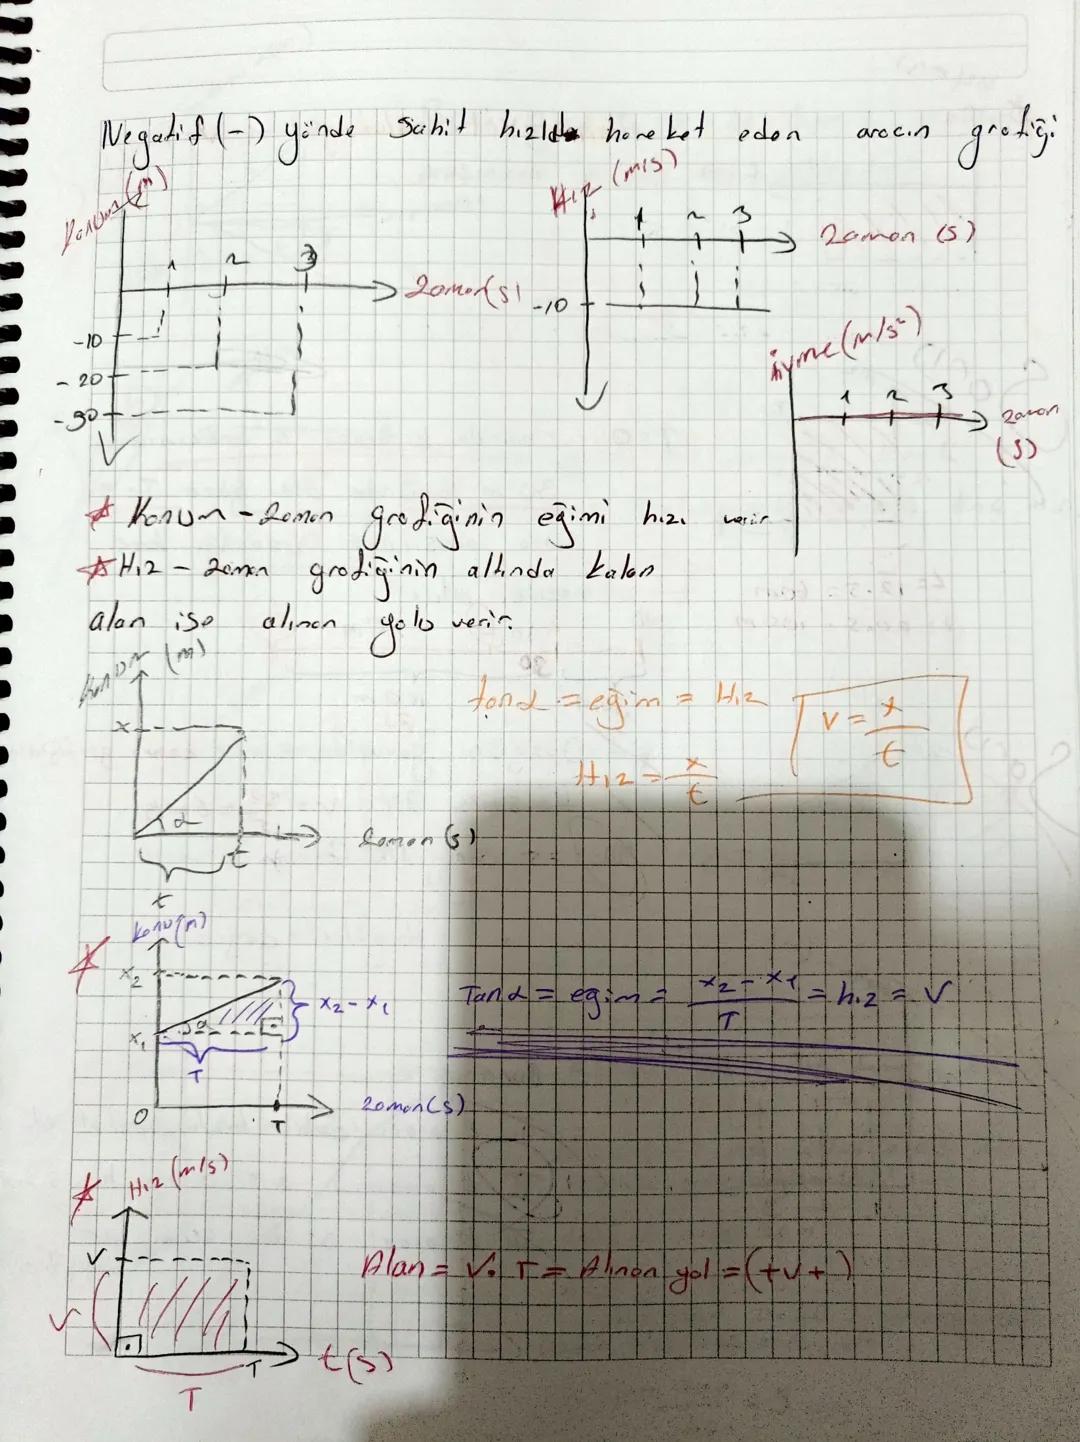 Negatif (-) yönde sabit hızla hareket eden aracın grafiği
Konum (m)
1 2 3
Zaman (s)
-10
-20
-30
Hız (m/s)
1 2 3
Zaman (s)
-10
İvme (m/s²)
1 2 3
Zaman
(s)
* Konum - Zaman grafiğinin eğimi hızı verir
* Hız - Zaman grafiğinin altında kalan
alan ise alınan yolu verir.
Konum (m)
x
α
t
Zaman (s)
t
tanα = eğim = Hız
V = x/t
Hız = x/t
* Konu (m)
x₂
x₁
α
x₂ - x₁
T
0
T
Zaman (s)
Tanα = eğim = x₂ - x₁ / T = hız = V
* Hız (m/s)
V
V
T
t (s)
T
Alan = V. T = Alınan yol = (+v+)